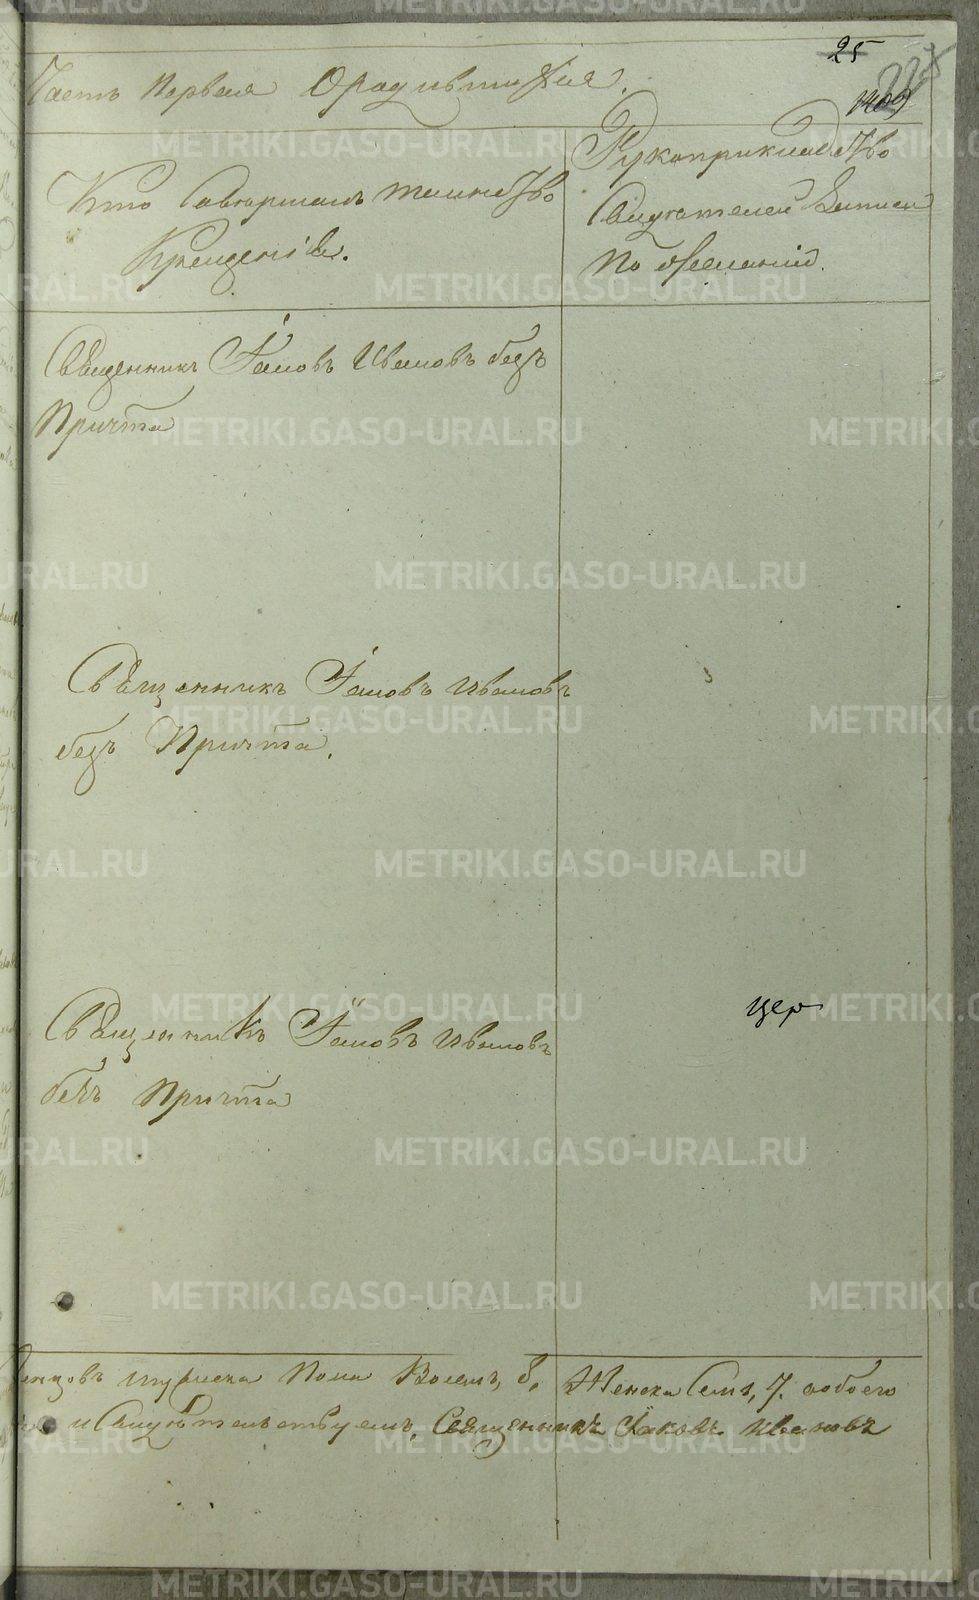 25
1409
Часть Первая О родившихся.
Кто Совершалъ таинство
Крещенія.
Рукоприкладство
Свидѣтелей Записи
По желанію.
Священникъ Іаковъ Ивановъ безъ
Причта
Священникъ Іаковъ Ивановъ
безъ Причта.
Священникъ Іаковъ Ивановъ
безъ Причта
Цер
мужеска Пола Восемь, 8, Женска Семь, 7. обоего
и Свидѣтельствуемъ, Священникъ Іаковъ Ивановъ
METRIKI.GASO-URAL.RU